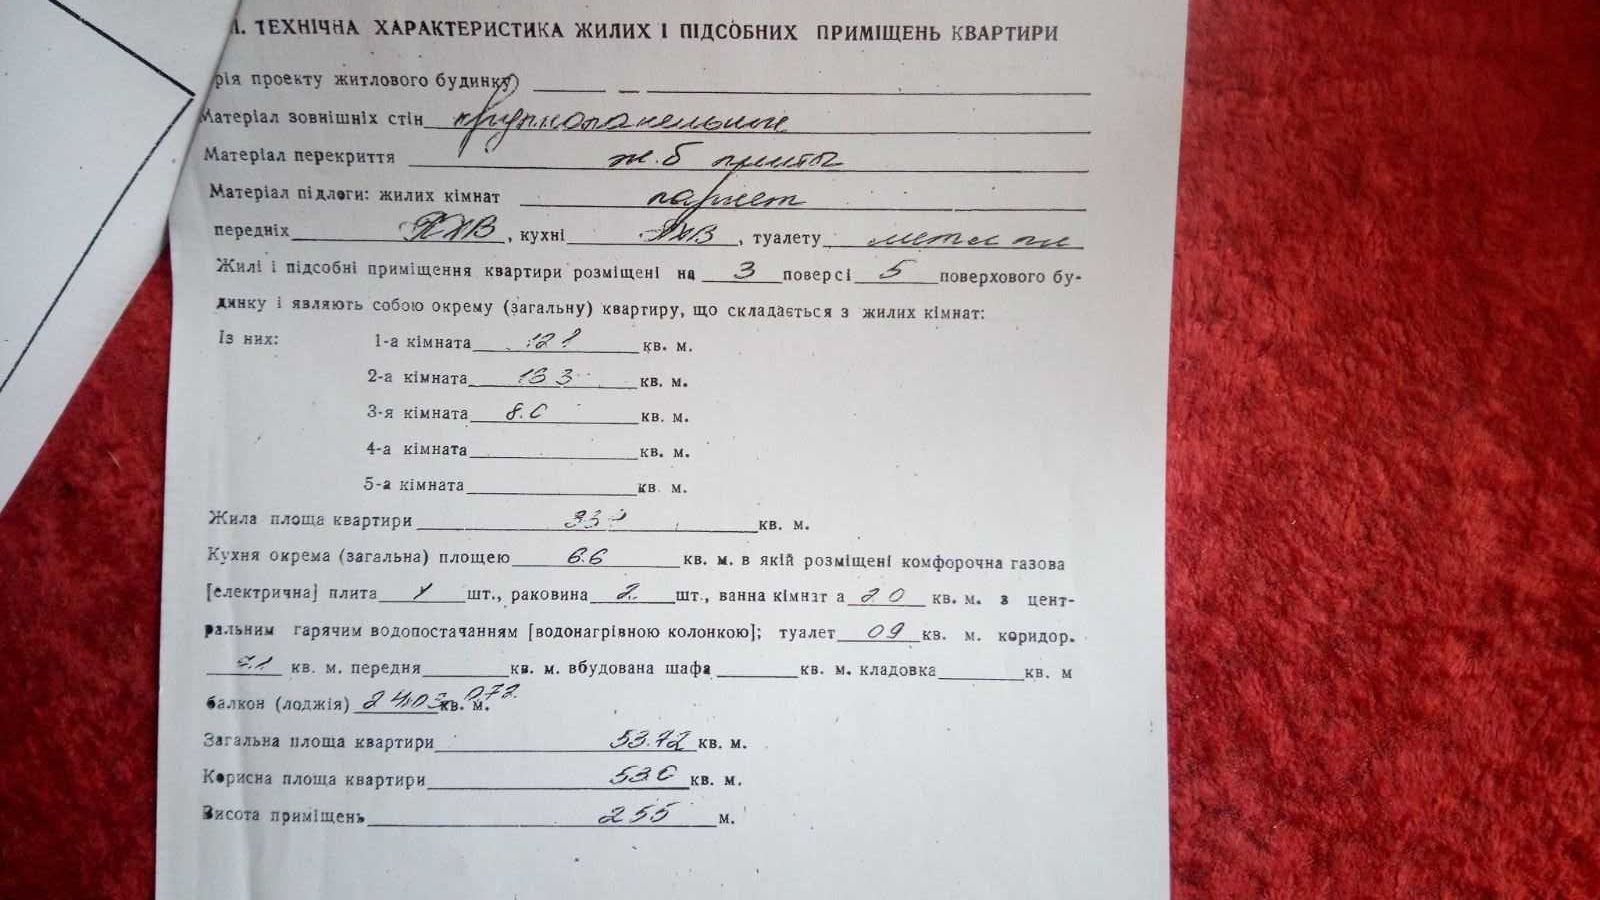 І. ТЕХНІЧНА ХАРАКТЕРИСТИКА ЖИЛИХ І ПІДСОБНИХ ПРИМІЩЕНЬ КВАРТИРИ
рія проекту житлового будинку —
Матеріал зовнішніх стін крупнопанельные
Матеріал перекриття ж.б плиты
Матеріал підлоги: жилих кімнат паркет
передніх ПХВ, кухні ПХВ, туалету метл пл
Жилі і підсобні приміщення квартири розміщені на 3 поверсі 5 поверхового бу-
динку і являють собою окрему (загальну) квартиру, що складається з жилих кімнат:
Із них: 1-а кімната кв. м.
2-а кімната 13 3 кв. м.
3-я кімната 8.0 кв. м.
4-а кімната кв. м.
5-а кімната кв. м.
Жила площа квартири кв. м.
Кухня окрема (загальна) площею 6.6 кв. м. в якій розміщені комфорочна газова
[електрична] плита шт., раковина 2. шт., ванна кімнат а 2 0 кв. м. з цент-
ральним гарячим водопостачанням [водонагрівною колонкою]; туалет 09 кв. м. коридор.
кв. м. передня кв. м. вбудована шафа кв. м. кладовка кв. м
балкон (лоджія) кв. м. 0.72
Загальна площа квартири 53.72 кв. м.
Корисна площа квартири 53.0 кв. м.
Висота приміщень 2 55 м.